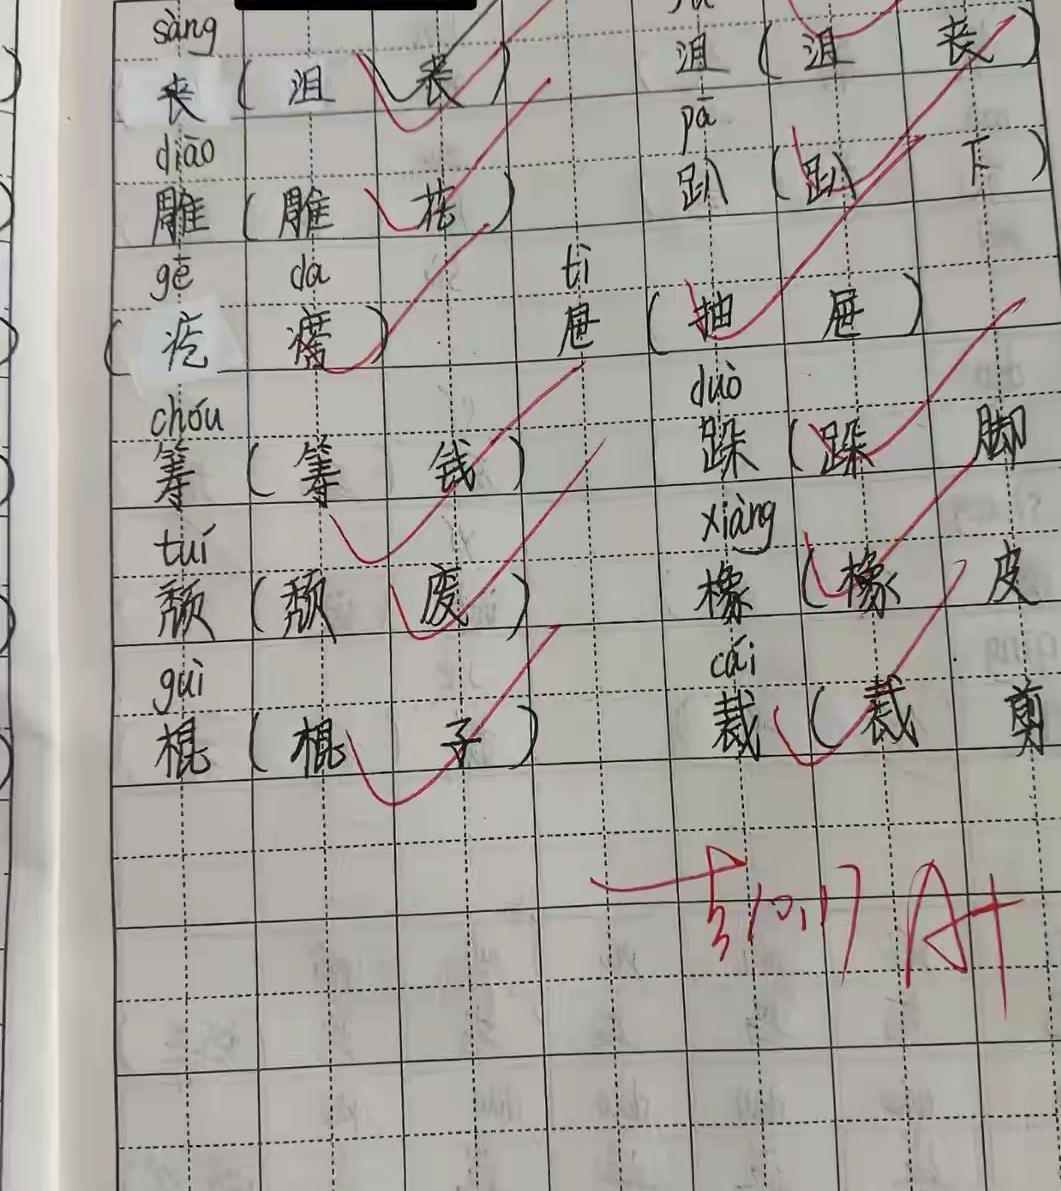 sàng
丧(沮丧) 沮(沮丧)
diāo pā
雕(雕花) 趴(趴下)
gē da tì
(疙瘩) 屉(抽屉)
chóu duò
筹(筹钱) 跺(跺脚
tuí xiàng
颓(颓废) 橡(橡皮
guì cái
棍(棍子) 裁(裁剪
10.17 A+